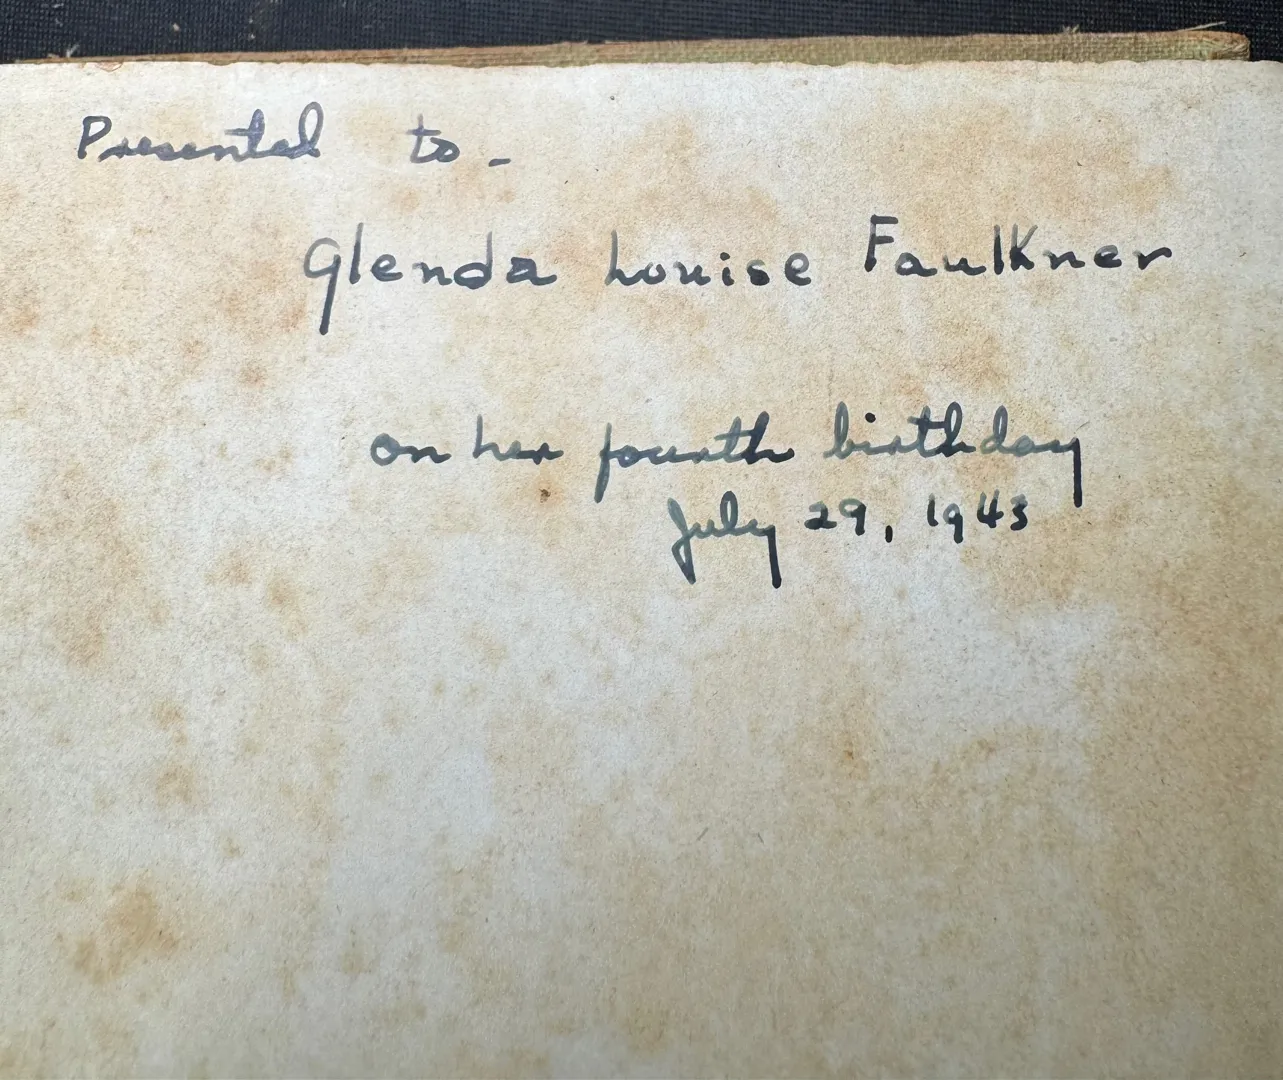 Presented to -
Glenda Louise Faulkner
on her fourth birthday
July 29, 1943